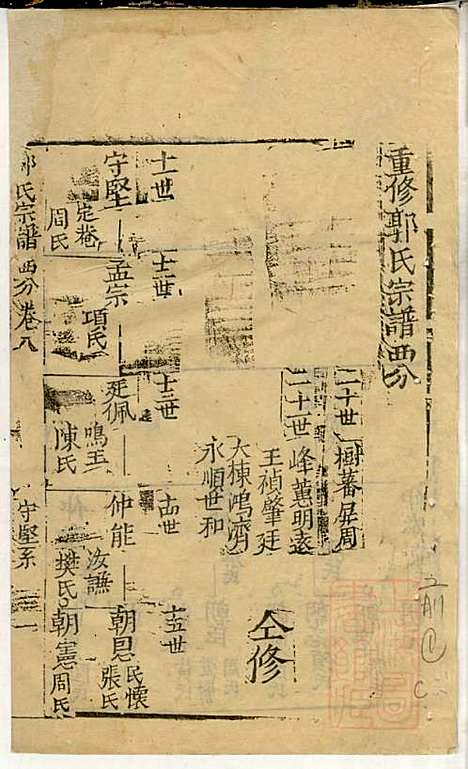 重修郭氏宗譜西分
二十世 樹蕃屏周
二十一世 峰蕙明遠
王禎肇廷
大棟鴻濟
永順世和
仝修
十一世 十二世 十三世 十四世 十五世
守堅 孟宗 廷佩 仲能 朝恩
定菴 項氏 鳴玉 汝讌 民懷
周氏 陳氏 樊氏 張氏
朝憲 周氏
郭氏宗譜 西分卷八 守堅系